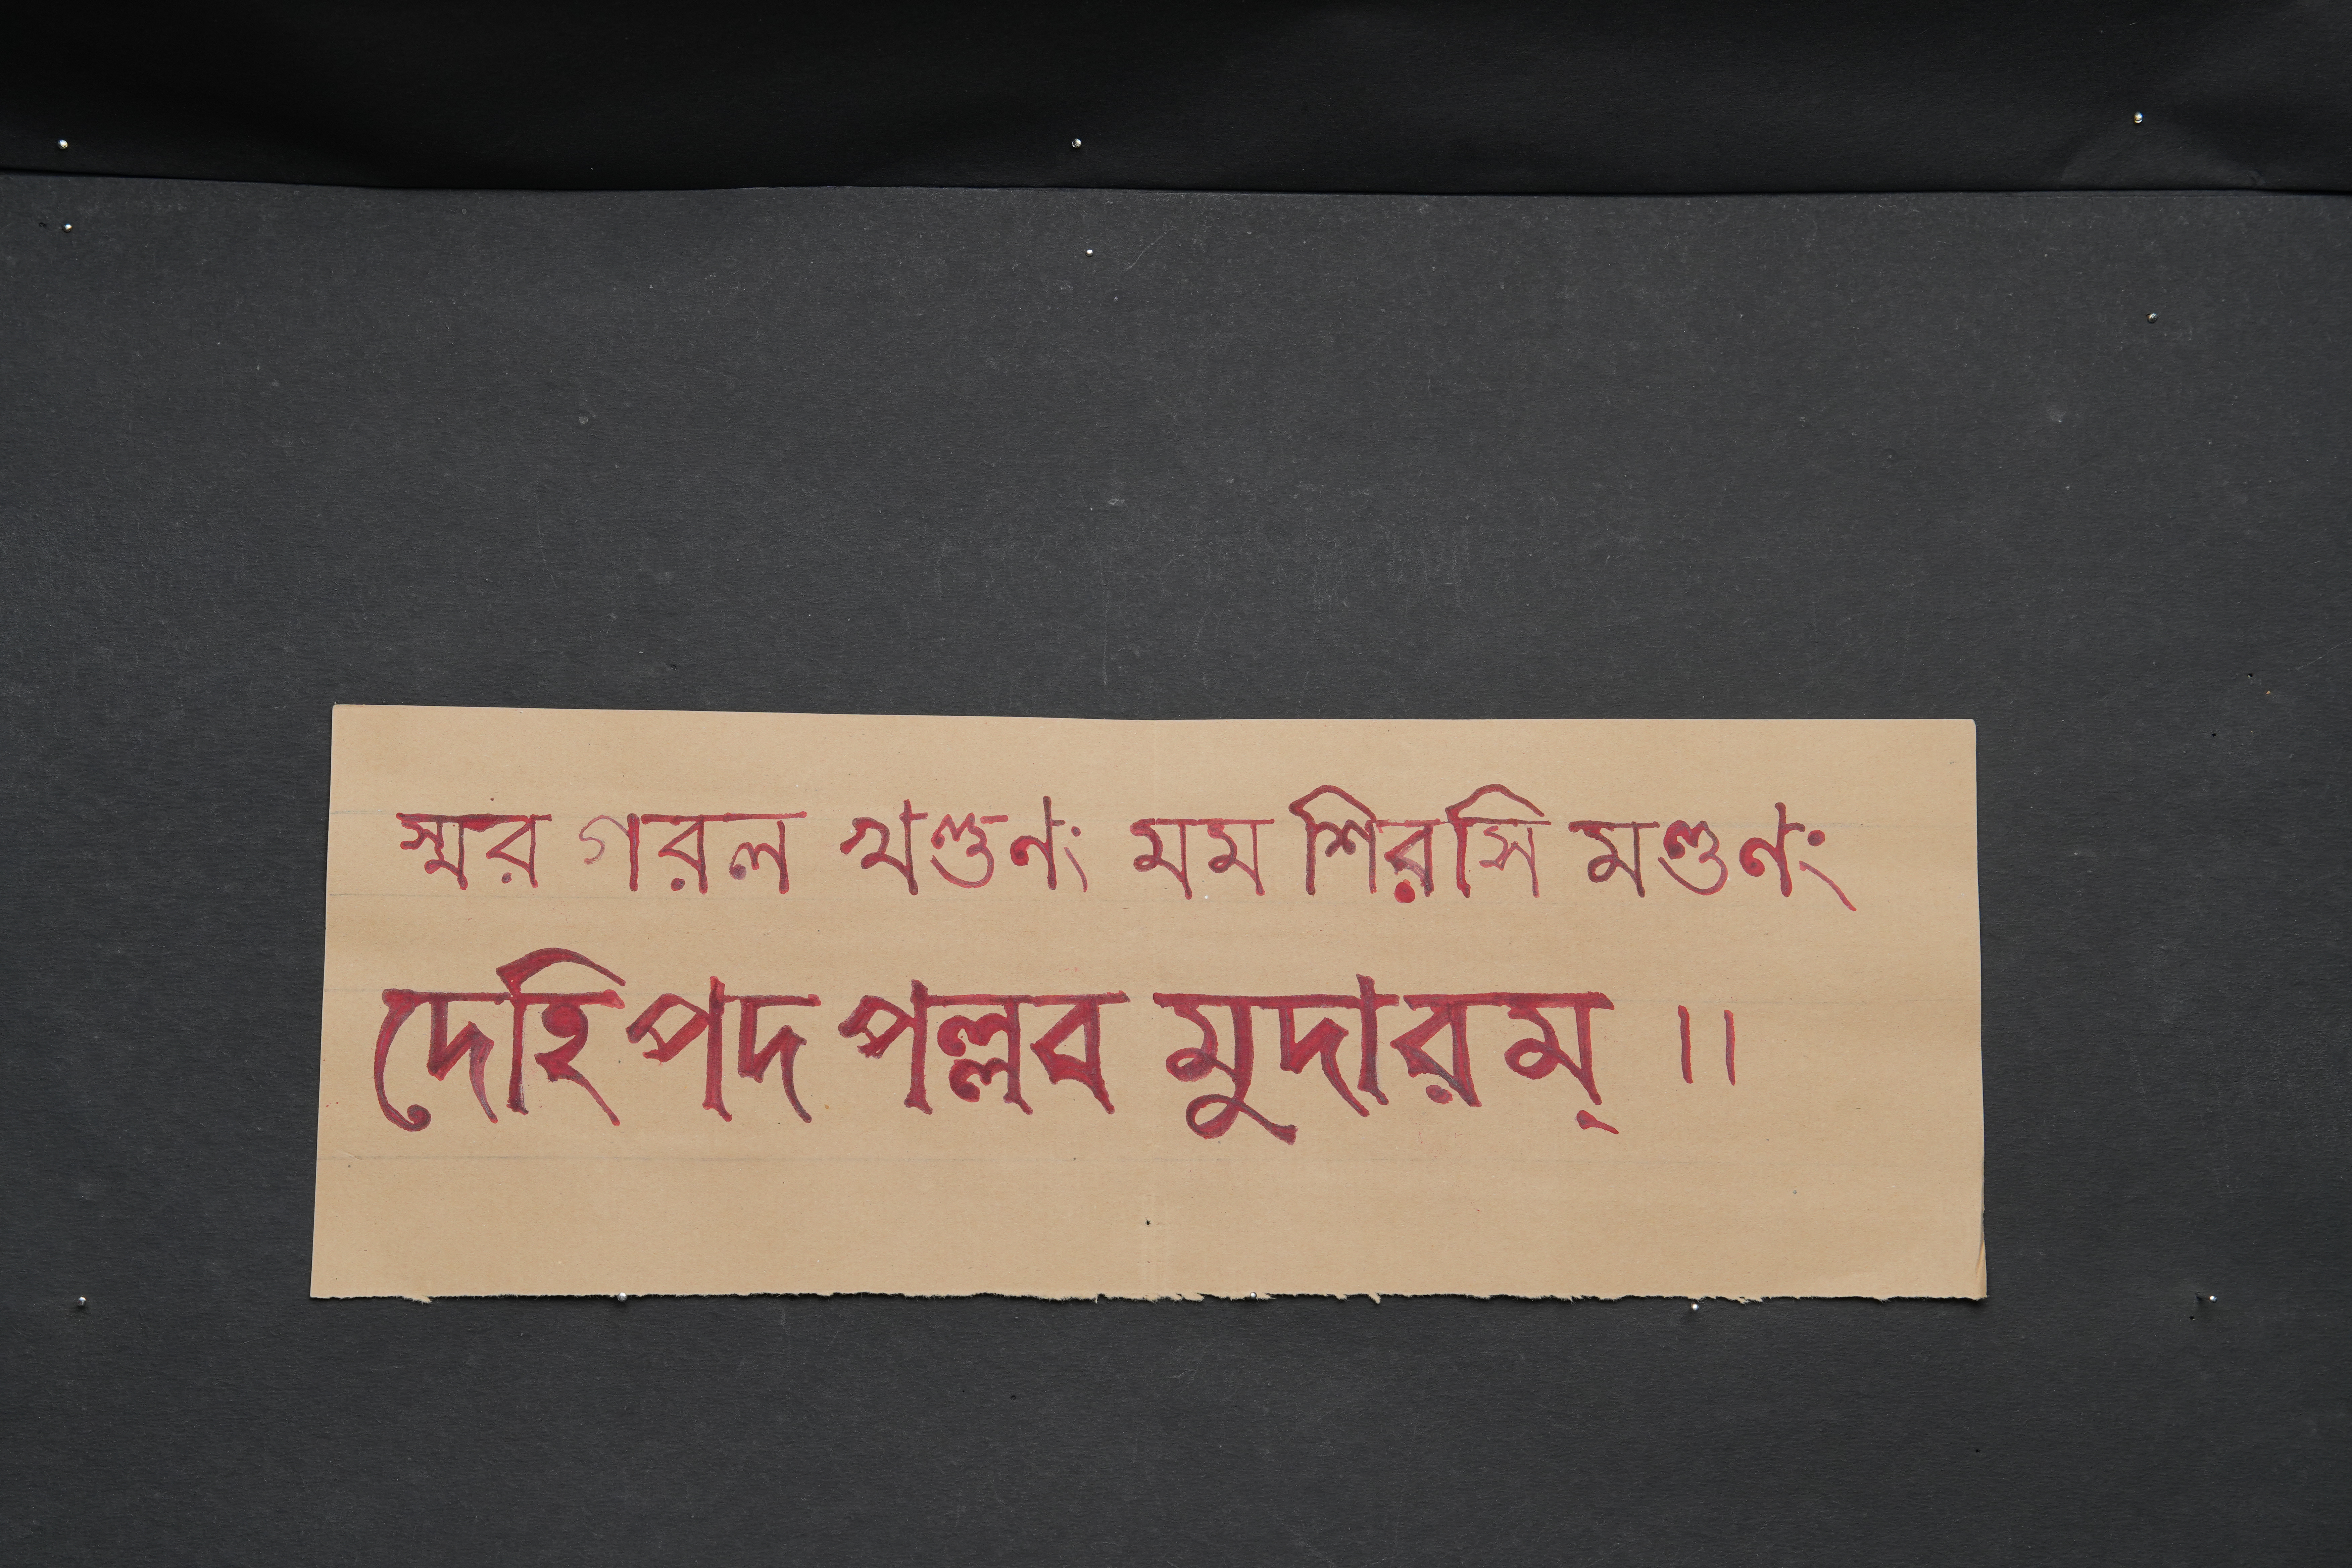 স্মর গরল খণ্ডণং মম শিরসি মণ্ডণং
দেহি পদ পল্লব মুদারম্ ।।